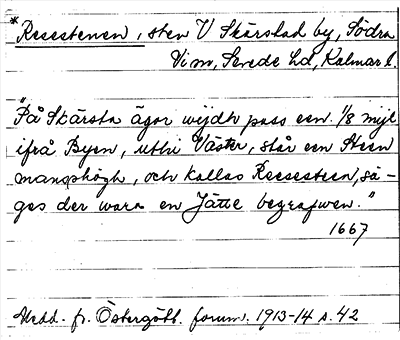 *Resestenen, sten V Skärstad by, Södra
Vi sn, Sevede hd, Kalmar l.
"På Skärsta ägor wijdh pass een 1/8 mijl
ifrå Byen, uthi Väster, står een Steen
manshögh, och kallas Reesesteen, sä-
ges der wara en Jätte begrafwen."
1667
Medd. fr. Östergötl. fornm. 1913-14 s. 42